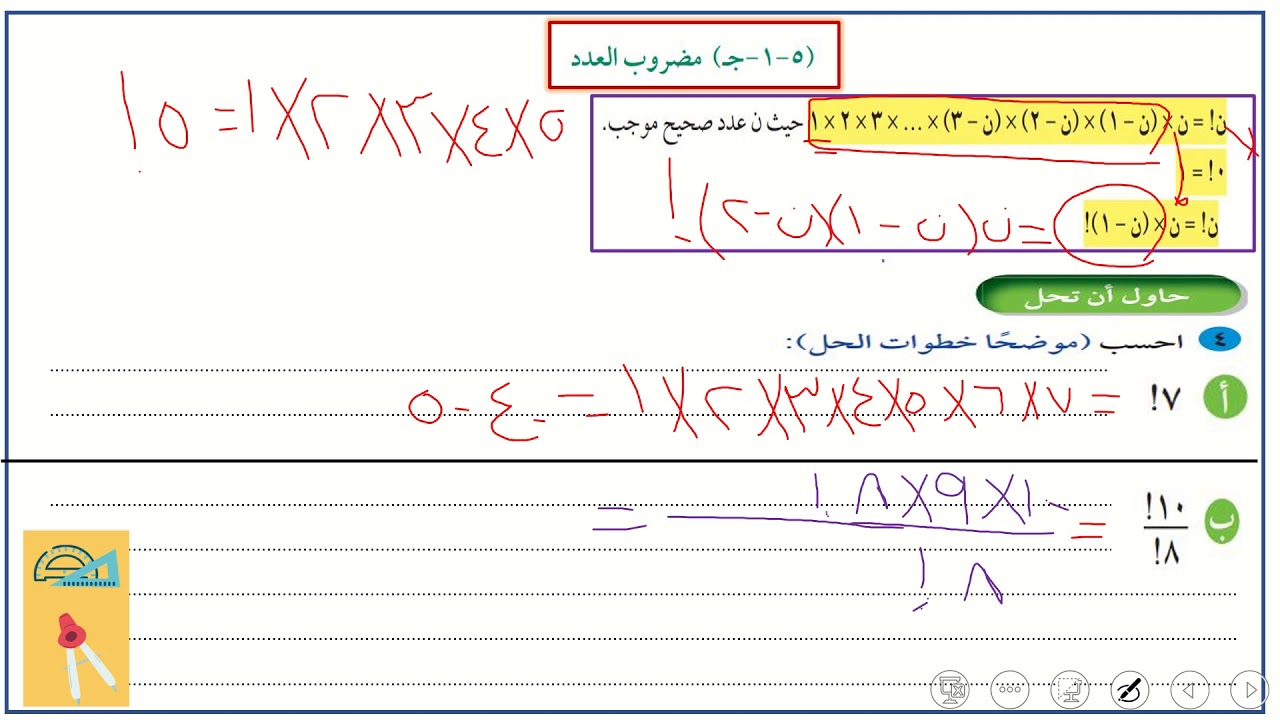 (٥-١-جـ) مضروب العدد
٥! = ١×٢×٣×٤×٥
ن! = ن×(ن-١)×(ن-٢)×(ن-٣)×...×٣×٢×١ حيث ن عدد صحيح موجب.
٠! =
ن! = ن×(ن-١)! = ن(ن-١)(ن-٢)!
حاول أن تحل
٤ احسب (موضحًا خطوات الحل):
أ ٧! = ٧×٦×٥×٤×٣×٢×١ = ٥٠٤٠
ب ١٠!/٨! = ١٠×٩×٨!/٨! =